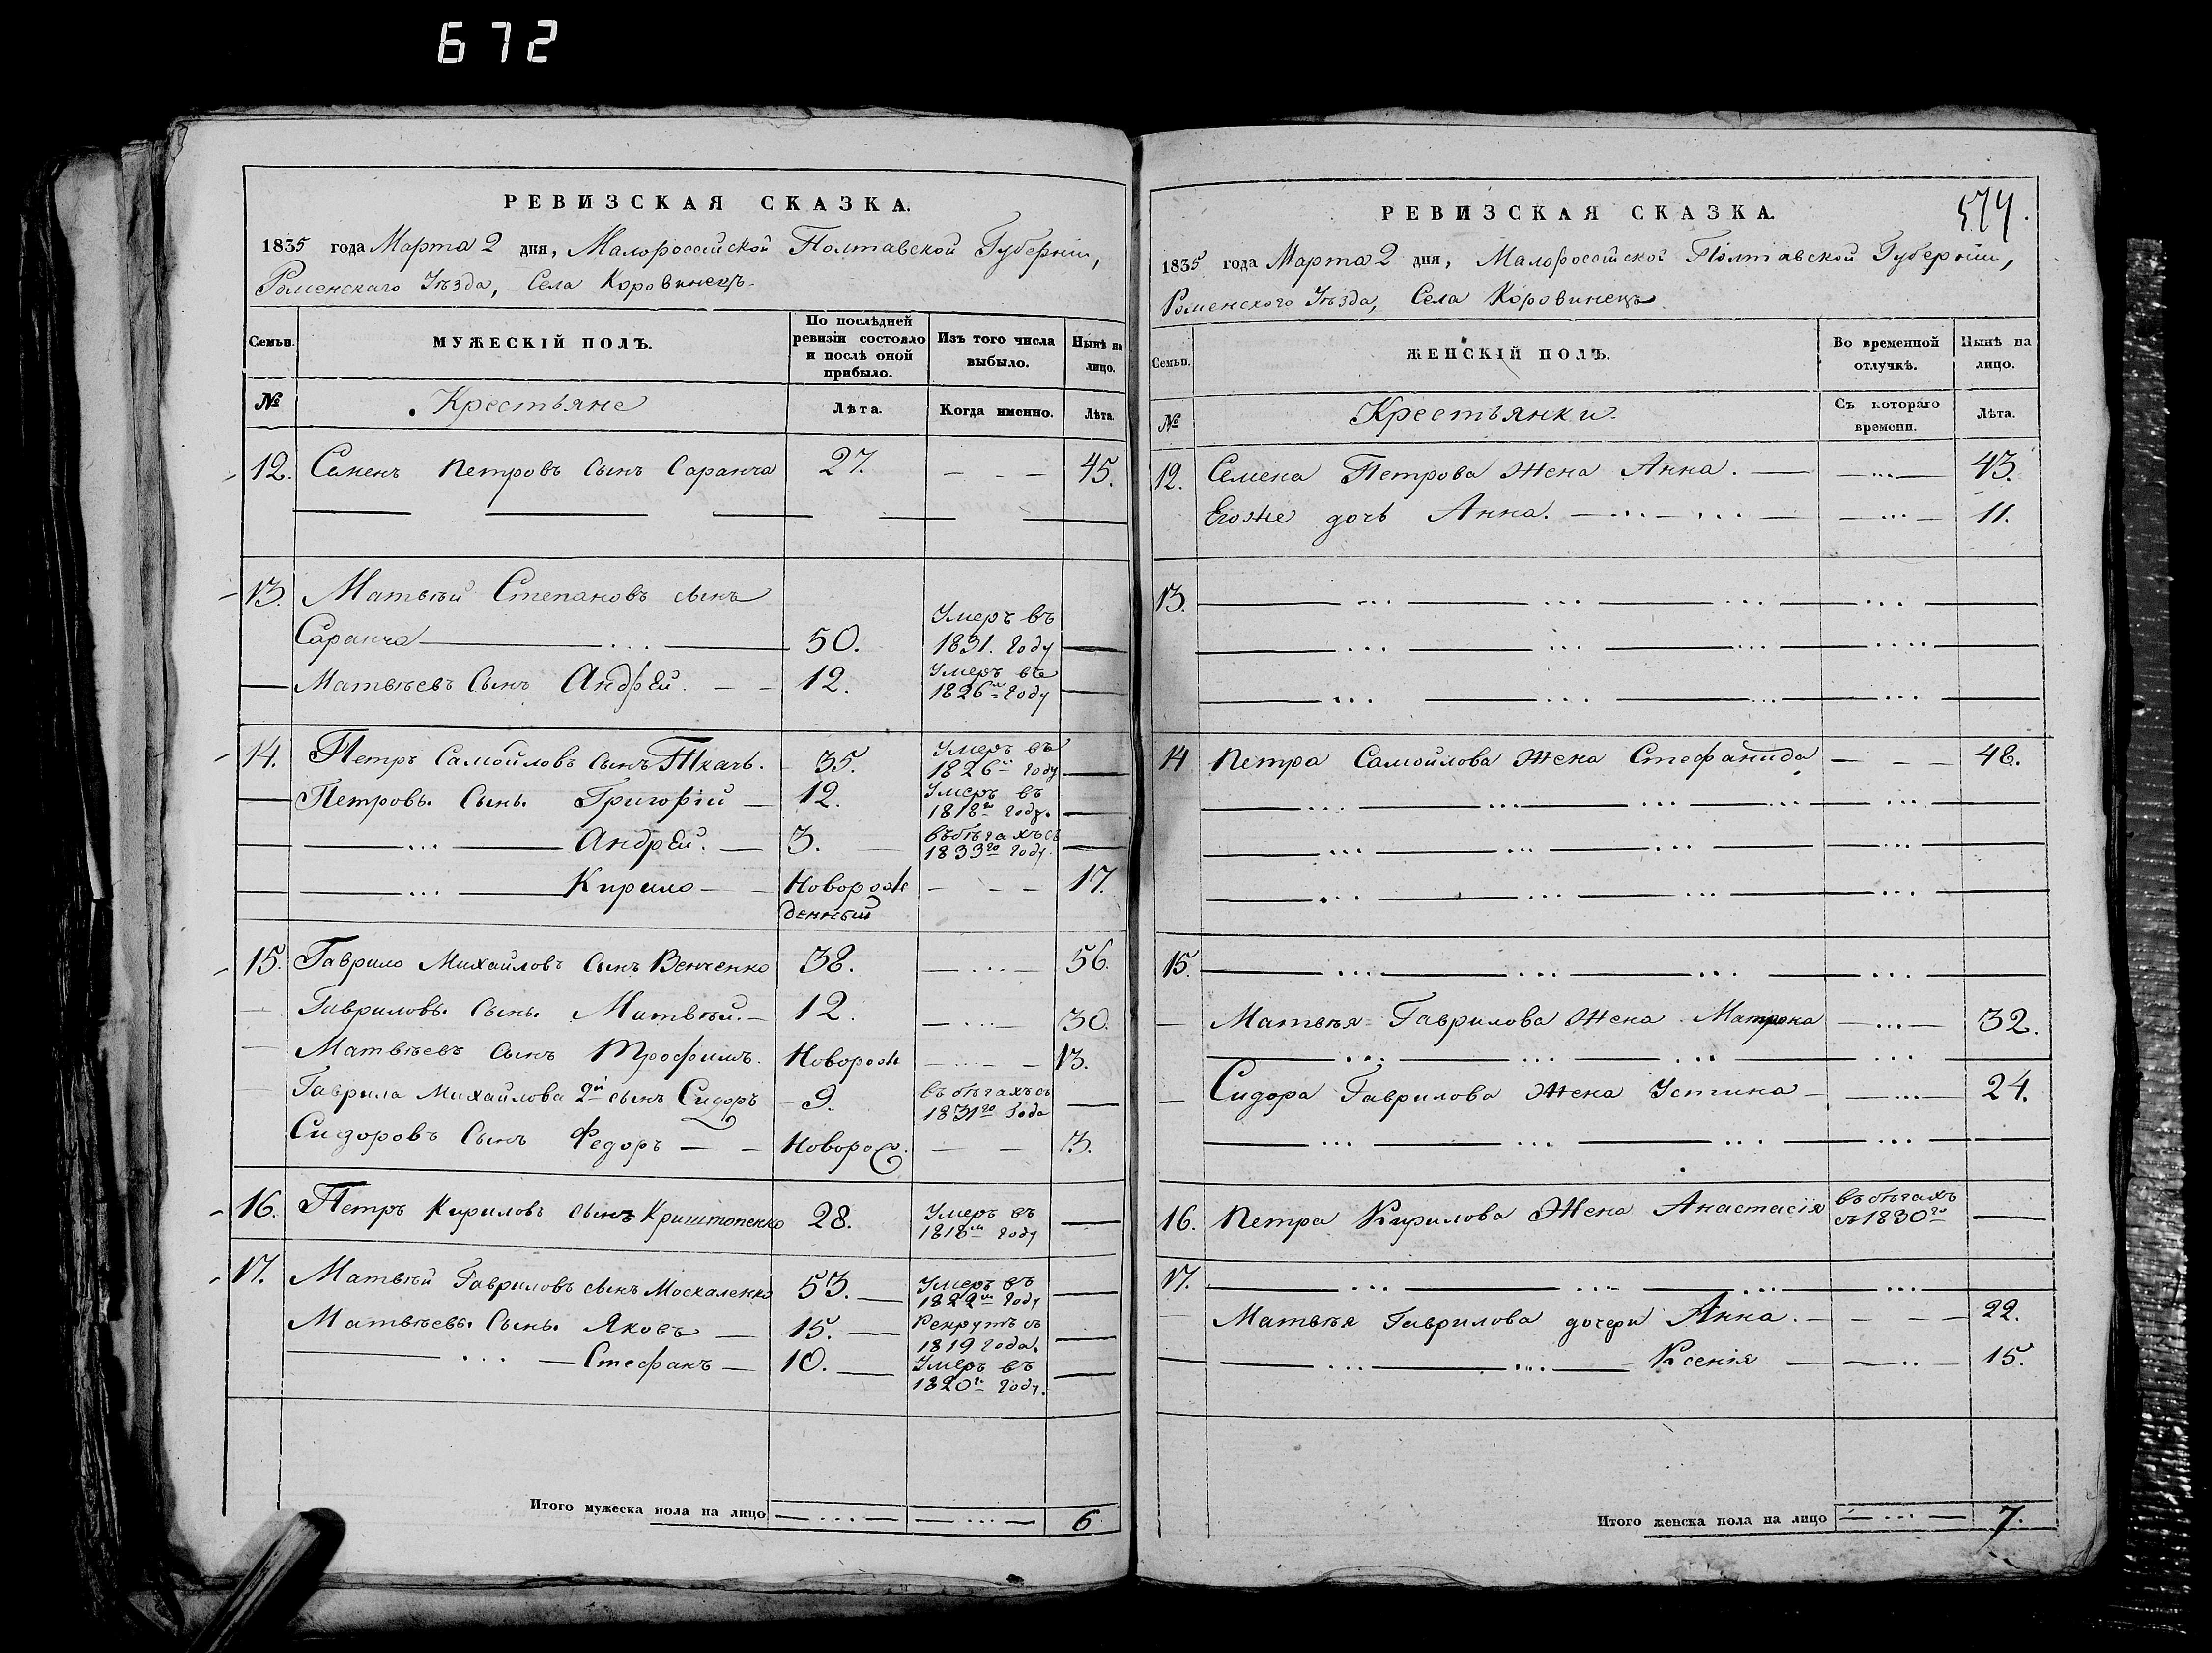 672
РЕВИЗСКАЯ СКАЗКА.
1835 года Марта 2 дня, Малороссийской Полтавской Губерніи,
Роменскаго Уѣзда, Села Коровинецъ.
Семьи. МУЖЕСКІЙ ПОЛЪ. По послѣдней ревизіи состояло и послѣ оной прибыло. Изъ того числа выбыло. Нынѣ на лицо.
№ Крестьяне Лѣта. Когда именно. Лѣта.
12. Семенъ Петровъ Сынъ Саранча 27. 45.
13. Матвѣй Степановъ сынъ
Саранча 50. Умеръ въ 1831. Году
Матвѣевъ Сынъ Андрей. 12. Умеръ въ 1826м Году
14. Петръ Самойловъ Сынъ Ткачь. 35. Умеръ въ 1826м Году
Петровъ. Сынъ. Григорій 12. Умеръ въ 1818м Году.
Андрей. 3. въ бѣгахъ съ 1833го Году.
Кирило Новорож 17.
денный
15. Гаврило Михайловъ Сынъ Венченко 38. 56.
Гавриловъ. Сынъ. Матвѣй. 12. 30.
Матвѣевъ Сынъ Трофимъ. Новорож 13.
Гаврила Михайлова 2й сынъ Сидоръ 9. въ бѣгахъ съ 1831го Года
Сидоровъ Сынъ Федоръ Новорож. 3.
16. Петръ Кириловъ сынъ Криштопенко 28. Умеръ въ 1818м Году
17. Матвѣй Гавриловъ сынъ Москаленко 53. Умеръ въ 1822м Году
Матвѣевъ. Сынъ. Яковъ 15. Рекрутъ съ 1819 Года.
Стефанъ 10. Умеръ въ 1820м Году.
Итого мужеска пола на лицо 6
574.
РЕВИЗСКАЯ СКАЗКА.
1835 года Марта 2 дня, Малороссійской Полтавской Губерніи,
Роменского Уѣзда, Села Коровинецъ
Семьи. ЖЕНСКІЙ ПОЛЪ. Во временной отлучкѣ. Нынѣ на лицо.
№ Крестьянки. Съ котораго времени. Лѣта.
12. Семена Петрова Жена Анна. 43.
Егоже дочь Анна. 11.
13.
14 Петра Самойлова Жена Стефанида 48.
15.
Матвѣя Гаврилова Жена Матрона 32.
Сидора Гаврилова Жена Устина 24.
16. Петра Кирилова Жена Анастасія въ бѣгахъ съ 1830го
17.
Матвѣя Гаврилова дочери Анна. 22.
Ксенія 15.
Итого женска пола на лицо 7.